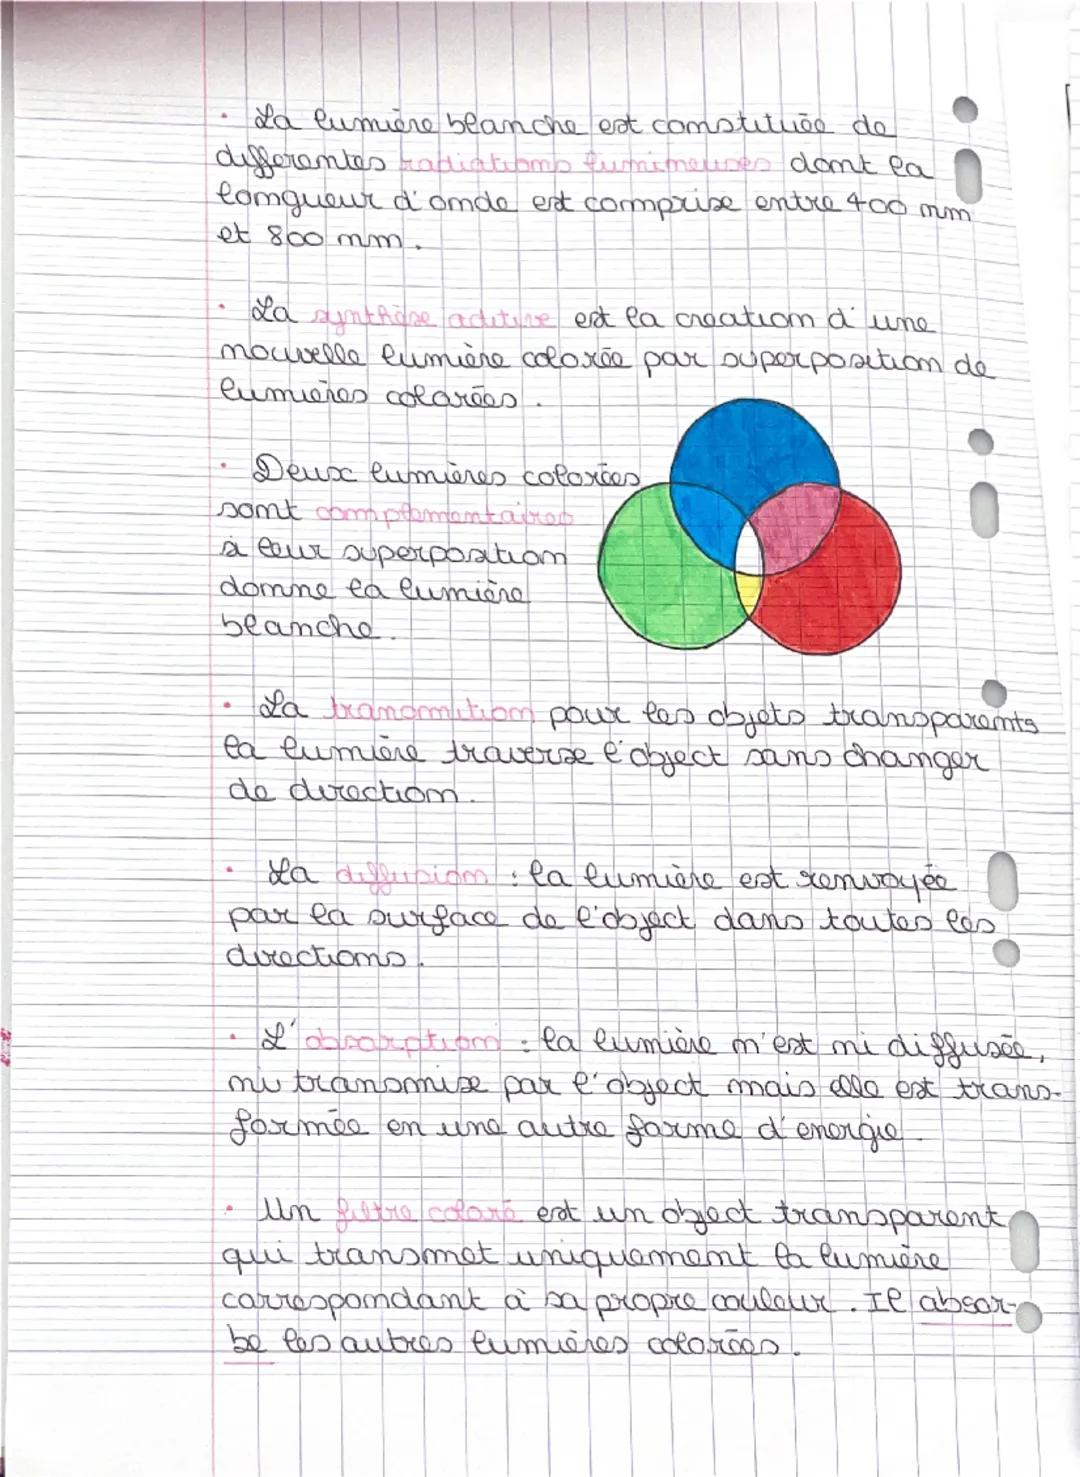 · La lumière blanche est constituée de
differentes radiations lumineuses dont la
longueur d'onde est comprise entre 400 nm
et 800 nm.
· La synthèse aditive est la creation d'une
nouvelle lumière colorée par superposition de
lumières colorées.
· Deux lumières colorées
sont complementaires
à leur superposition
donne la lumière
blanche.
· La transmition pour les objets transparents
la lumière traverse l'object sans changer
de direction.
· La diffusion : la lumière est renvoyée
par la surface de l'object dans toutes les
directions.
· L'absorption : la lumière n'est ni diffusée,
ni transmise par l'object mais elle est trans-
formée en une autre forme d'energie.
· Un filtre coloré est un object transparent
qui transmet uniquement la lumière
correspondant à sa propre couleur. Il absor-
be les autres lumières colorées.